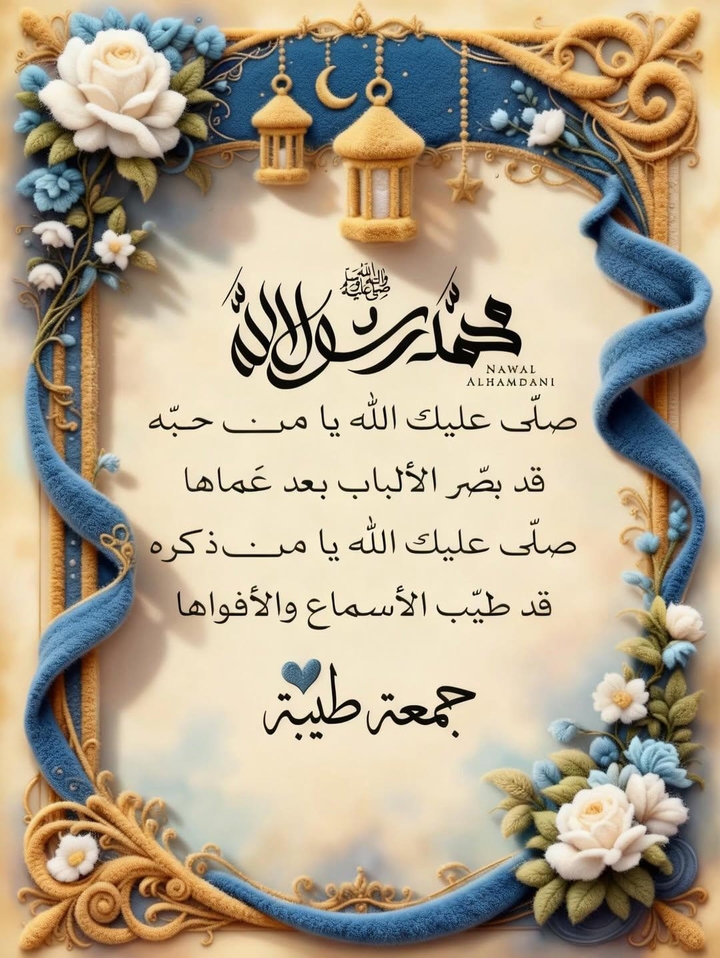 محمد رسول الله
صلى الله عليه وآله وسلم
NAWAL
ALHAMDANI
صلّى عليك الله يا مـن حـبّه
قد بصّر الألباب بعد عَماها
صلّى عليك الله يا مـن ذكره
قد طيّب الأسماع والأفواها
جمعة طيبة